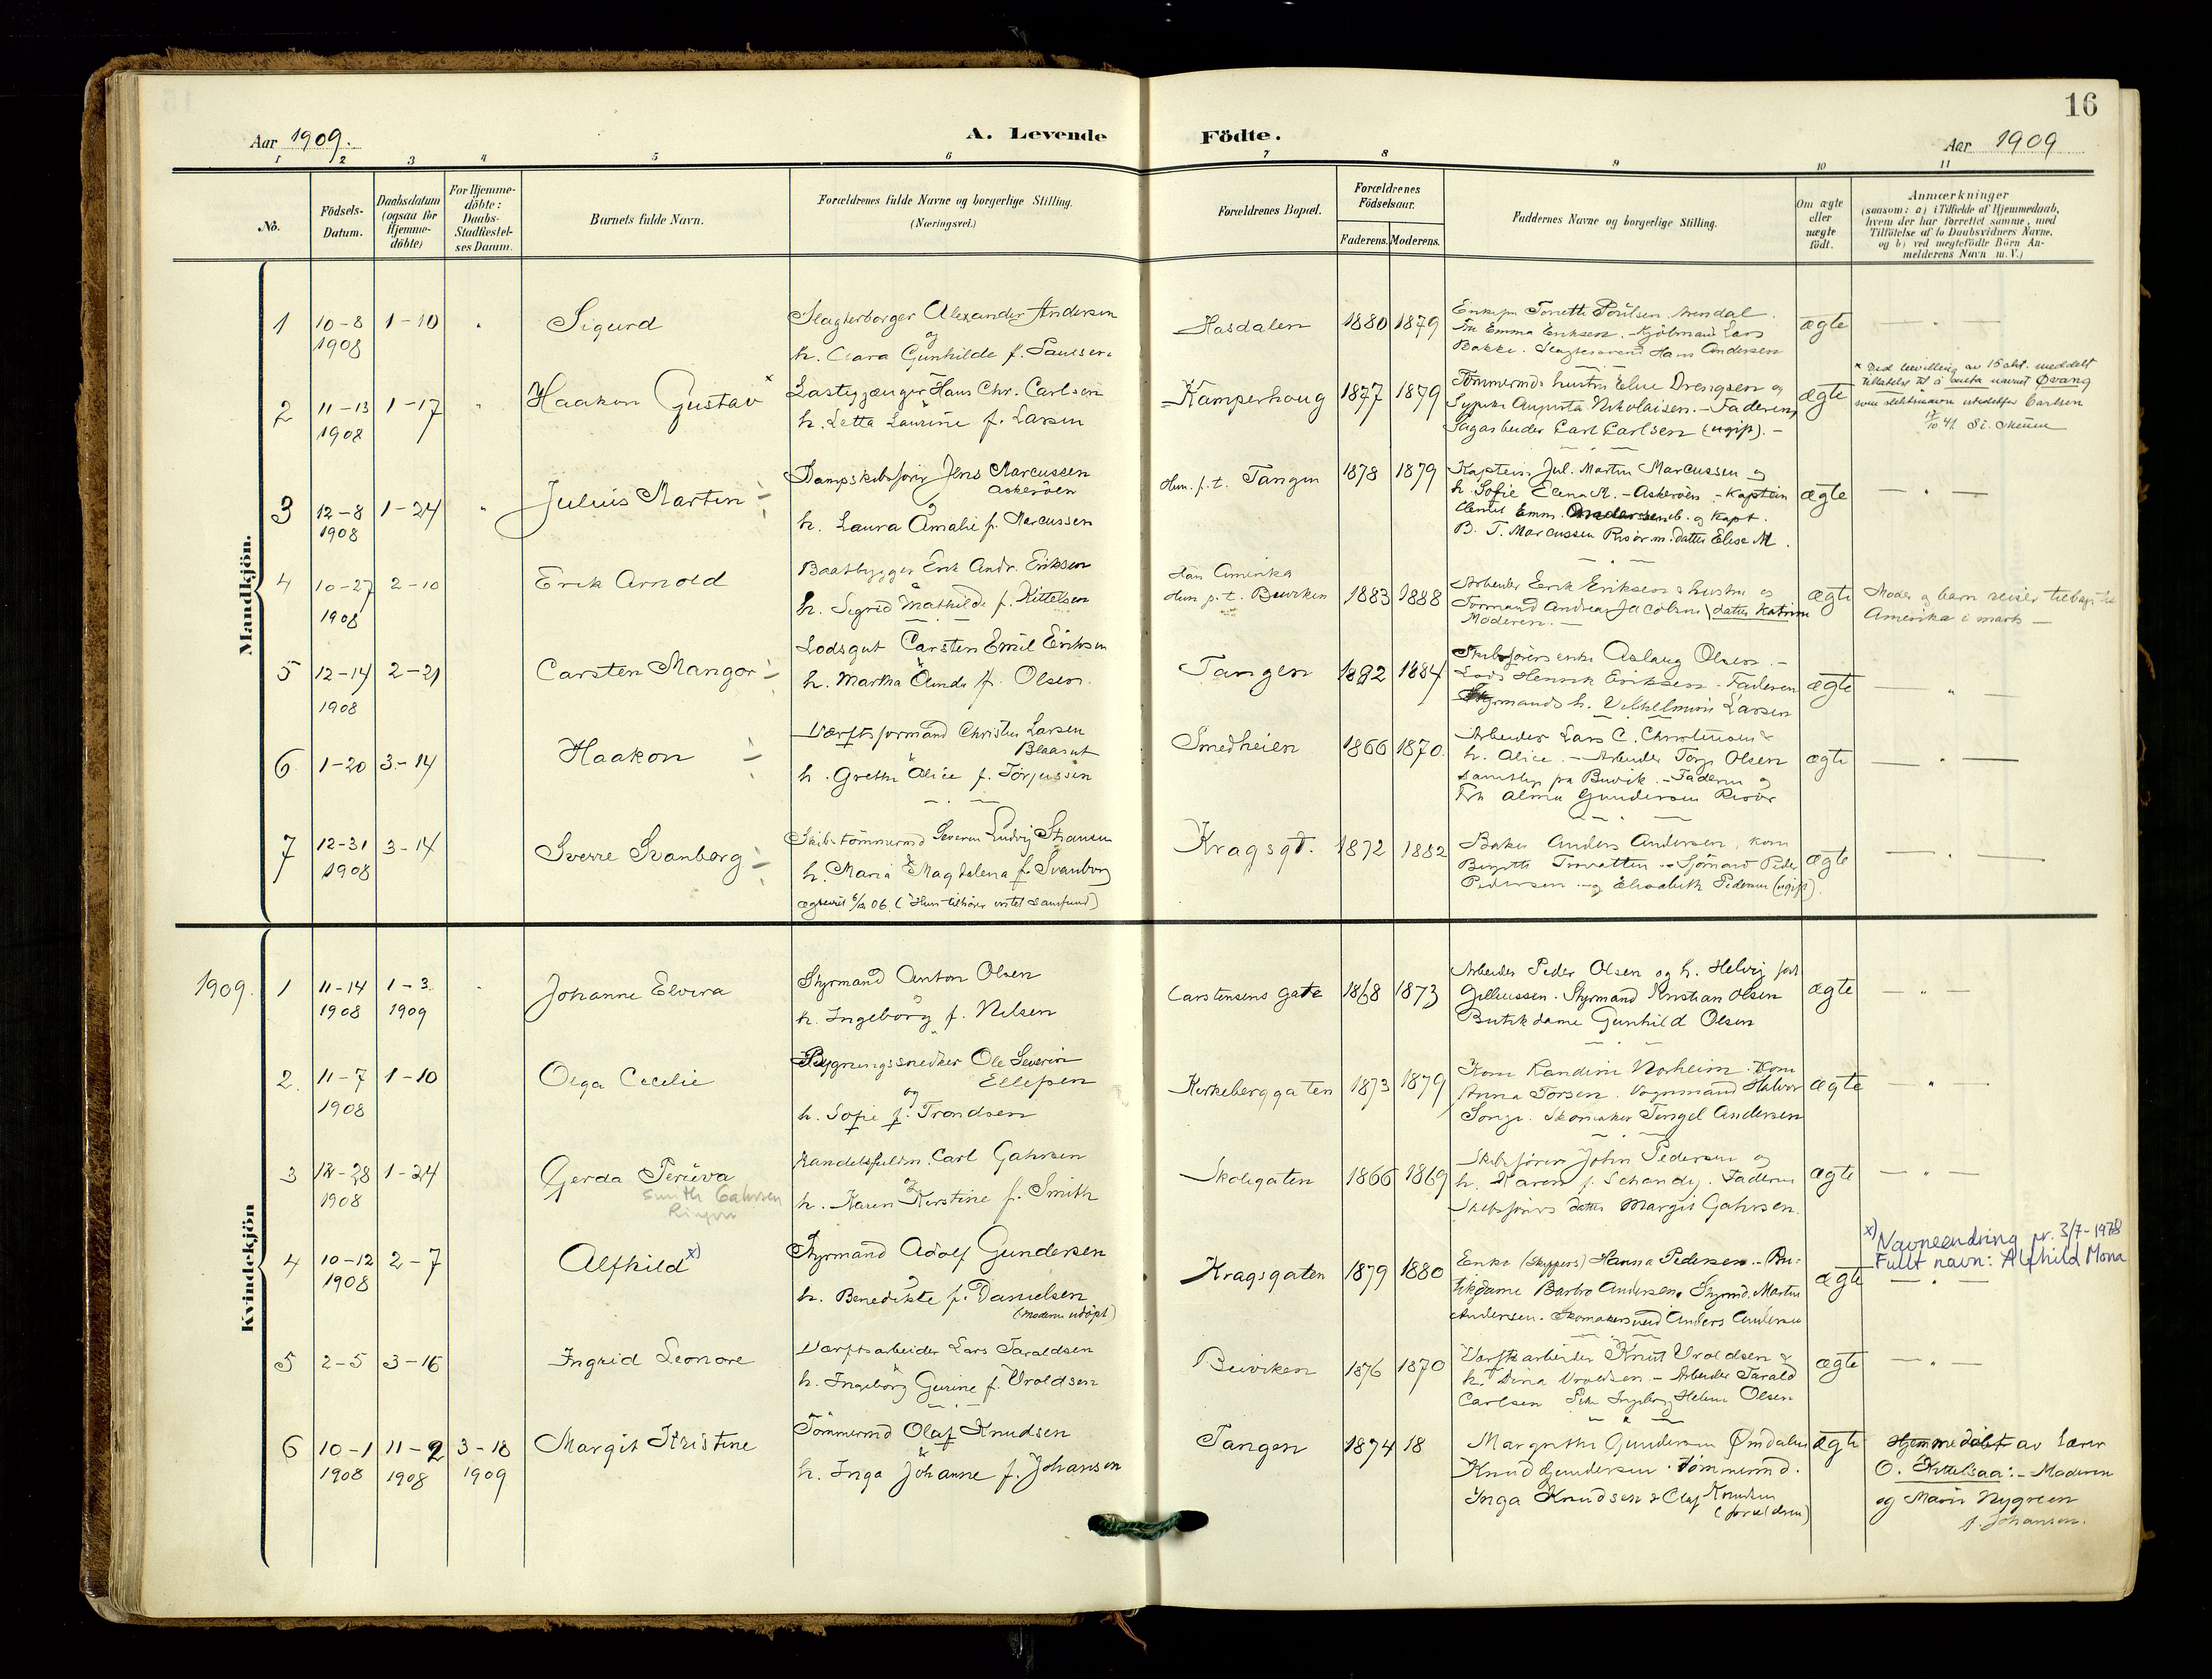 16
Aar 1909.
A. Levende
Födte.
Aar 1909
1 2 3 4 5 6 7 8 9 10 11
No.
Födsels-
Datum.
Daabsdatum
(ogsaa for
Hjemme-
döbte)
For Hjemme-
döbte:
Daabs-
Stadfæstel-
ses Datum.
Barnets fulde Navn.
Forældrenes fulde Navne og borgerlige Stilling.
(Næringsvei.)
Forældrenes Bopæl.
Forældrenes
Födselsaar.
Faderens. Moderens.
Faddernes Navne og borgerlige Stilling.
Om ægte
eller
uægte
födt.
Anmærkninger
(saasom: a) i Tilfælde af Hjemmedaab,
hvem der har forrettet samme, med
Tilföielse af to Daabsvidners Navne,
og b) ved uægtefödte Börn An-
melderens Navn m. V.)
Mandkjön.
1 10-8 1-10 Sigurd
1908
Slagterborger Alexander Andersen
og
h. Clara Gunhilde f. Paulsen
Hasdalen 1880 1879
Arendal.
Frk Emma Eriksen. Kjöbmand Lars
Bakke. Hans Andersen
ægte
2 11-13 1-17 Haakon Gustav x
1908
Hans Chr. Carlsen
h. Letta Laurine f. Larsen
Kamperhoug 1877 1879
Tömmermds hustru Drengsen og
Augusta Nikolaisen. - Faderen
Sagarbeider Carl Carlsen (ugift). -
ægte
x Ved bevilling av 15 okt. meddelt
tillatelse til å anta navnet Øvang
som slektsnavn istedetfor Carlsen
3 12-8 1-24 Julius Martin
1908
Dampskibsförer Jens Marcussen
Askeröen
og
h. Laura Amalie f. Marcussen
Hun. p.t. Tangen 1878 1879
Kaptein Jul. Martin Marcussen og
h. Sofie Elena M. - Askeröen - Kaptein
Emm. og Kapt.
B. T. Marcussen Risör m. datter Elise M.
ægte
4 10-27 2-10 Erik Arnold
1908
Baatbygger Erik Andr. Eriksen
h. Sigrid Mathilde f. Kittelsen
Han Amerika
Hun p.t. Buviken 1883 1888
Arbeider Erik Eriksen & hustru og
Formand Andreas Jacobsen datter Katrine
Moderen. -
ægte
Moder og barn reiser tilbage til
Amerika i marts -
5 12-14 2-21 Carsten Mangor
1908
Lodsgut Carsten Emil Eriksen
h. Martha f. Olsen
Tangen 1882 1884
Skibsförers enke Aslaug Olsen. -
Lods Henrik Eriksen. Faderen
Styrmands h. Vilhelmine Larsen
ægte
6 1-20 3-14 Haakon
Værftsformand Christen Larsen
Blaasut
h. Grethe Alice f. Törjussen
Smedheien 1866 1870.
Arbeider Lars C. Christensen &
h. Alice. - Arbeider Torje Olsen
samtlige fra Buvik. - Faderen og
Frk Alma Gundersen Risör
ægte
7 12-31 3-14 Sverre Svanborg
1908
Skibstömmermd Severin Ludvig
&
h. Maria Magdalena f. Svanborg
06. (Hun tilhörer intet samfund)
Kragsgt. 1872 1882
Baker Anders Andersen, kone
Sjömand Peder
Pedersen - og Elisabeth Pedersen (ugift).
ægte
Kvindekjön
1909. 1 11-14 1-3 Johanne Elvira
1908 1909
Styrmand Anton Olsen
og
h. Ingeborg f. Nilsen
Carstensens gate 1868 1873
Arbeider Peder Olsen og h. Helvig
Styrmand Kristian Olsen
Butikdame Gunhild Olsen
ægte
2. 11-7 1-10 Olga Cecilie
1908
Bygningssnedker Ole Severin
Ellefsen
og
h. Sofie f. Trondsen
Kirkeberggaten 1873 1879
Kone Randine Norheim. Kone
Anna Torsen. Vognmand Halvor
Songe. Skomaker Tengel Andersen
ægte
3 12-28 1-24 Gerda Peruva
1908
Smith Gahrsen
Handelsfuldm. Carl Gahrsen
og
h. Karen Kirstine f. Smith
Skolegaten 1866 1869
Skibsförer John Pedersen og
h. Karen f. Schandy. Faderen
Skibsförers datter Margit Gahrsen.
ægte
4 10-12 2-7 Alfhild x)
1908
Styrmand Adolf Gundersen
h. Benedikte f. Danielsen
(Moderen udöpt)
Kragsgaten 1879 1880
Enke (Skippers) Hanna Pedersen - Bu-
tikdame Barbro Andersen. Styrmd. Martin
Andersen. Skomakersvend Anders Andersen
ægte
x) Navneendring pr. 3/7-1978
Fullt navn: Alfhild Mona
5 2-5 3-16 Ingrid Leonore
Værftsarbeider Lars Taraldsen
&
h. Ingeborg Gurine f. Vroldsen
Buviken 1876 1870
Værftsarbeider Knut Vroldsen &
h. Dina Vroldsen - Arbeider Tarald
Carlsen Pike Ingeborg Helene Olsen
ægte
6 10-1 11-2 3-18 Margit Kristine
1908 1908 1909
Tömmermd Olaf Knudsen
&
h. Inga Johanne f. Johansen
Tangen 1874 18
Margrethe Gundersen Ömdalen
Knud Gundersen. Tömmermd.
Inga Knudsen & Olaf Knudsen
(forældrene)
ægte
Hjemmedöbt av Lærer
O. Kittelsaa: - Moderen
og Marie Nygreen
f. Johansen.